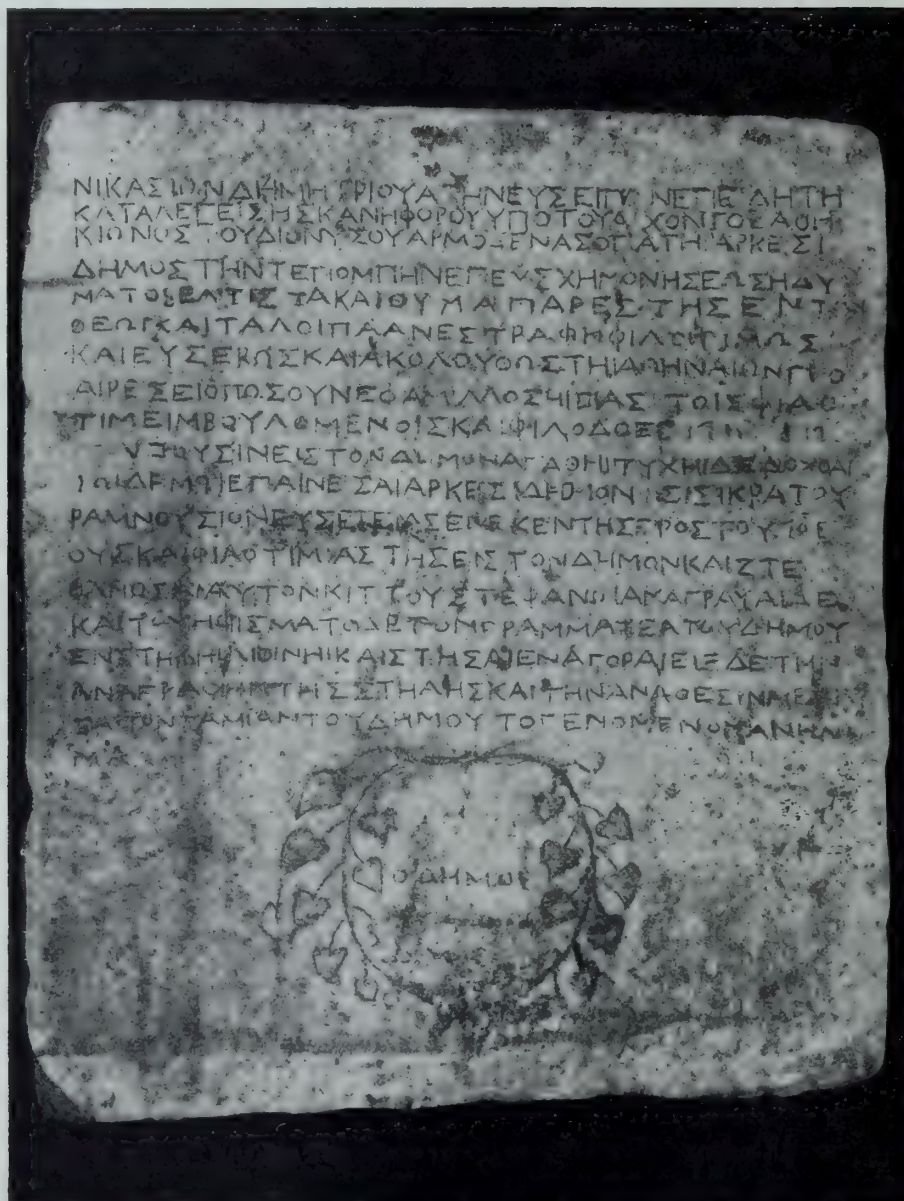 ΝΙΚΑΣΙΩΝ ΔΗΜΗΤΡΙΟΥ ΕΠΕΙΔΗ ΤΗ
ΚΑΤΑΛΕΓΕΙΣΗΣ ΚΑΝΗΦΟΡΟΥ ΥΠΟ ΤΟΥ
ΤΟΥ ΔΙΟΝΥΣΟΥ ΑΡΚΕΣΙ
ΔΗΜΟΣ ΤΗΝ ΤΕ ΠΟΜΠΗΝ ΕΠΕΜΨΕ
ΚΑΙ ΘΥΜΑ ΠΑΡΕΣΤΗΣΕΝ Τ
ΘΕΩΙ ΚΑΙ ΤΑ ΛΟΙΠΑ ΑΝΕΣΤΡΑΦΗ ΦΙΛΟΤΙΜΩΣ
ΚΑΙ ΕΥΣΕΒΩΣ ΚΑΙ ΑΚΟΛΟΥΘΩΣ ΤΗΙ ΑΘΗΝΑΙΩΝ ΠΡΟ
ΑΙΡΕΣΕΙ ΟΠΩΣ ΟΥΝ ΕΦΑΜΙΛΛΟΣ ΤΟΙΣ ΦΙΛΟ
ΤΙΜΕΙΜ ΒΟΥΛΟΜΕΝΟΙΣ ΚΑΙ ΦΙΛΟΔΟΞΕΙ
ΟΥΣΙΝ ΕΙΣ ΤΟΝ ΔΗΜΟΝ ΑΓΑΘΗΙ ΤΥΧΗΙ ΔΕΔΟΧΘΑΙ
ΕΠΑΙΝΕΣΑΙ ΑΡΚΕΣΙΔΗΜΟΝ
ΡΑΜΝΟΥΣΙΟΝ ΕΥΣΕΒΕΙΑΣ ΕΝΕΚΕΝ ΤΗΣ ΠΡΟΣ ΤΟΥΣ ΘΕ
ΟΥΣ ΚΑΙ ΦΙΛΟΤΙΜΙΑΣ ΤΗΣ ΕΙΣ ΤΟΝ ΔΗΜΟΝ ΚΑΙ ΣΤΕ
ΦΑΝΩΣΑΙ ΑΥΤΟΝ ΚΙΤΤΟΥ ΣΤΕΦΑΝΩΙ ΑΝΑΓΡΑΨΑΙ ΔΕ
ΚΑΙ ΤΟ ΨΗΦΙΣΜΑ ΤΟΔΕ ΤΟΝ ΓΡΑΜΜΑΤΕΑ ΤΟΥ ΔΗΜΟΥ
ΕΝ ΣΤΗΛΗΙ ΛΙΘΙΝΗΙ ΚΑΙ ΣΤΗΣΑΙ ΕΝ ΑΓΟΡΑΙ ΕΙΣ ΔΕ ΤΗΝ
ΑΝΑΓΡΑΦΗΝ ΤΗΣ ΣΤΗΛΗΣ ΚΑΙ ΤΗΝ ΑΝΑΘΕΣΙΝ ΜΕΡΙ
ΣΑΙ ΤΟΝ ΤΑΜΙΑΝ ΤΟΥ ΔΗΜΟΥ ΤΟ ΓΕΝΟΜΕΝΟΝ ΑΝΗΛΩ
ΜΑ
Ο ΔΗΜΟΣ